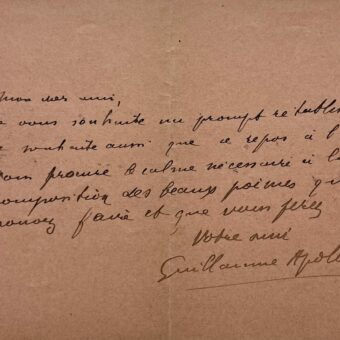 Mon cher ami,
vous souhaite un prompt rétablis
souhaite aussi que ce repos à l'
vous procure le calme nécessaire à la
composition des beaux poèmes qu
pouvez faire et que vous ferez
Votre ami
Guillaume Apoll